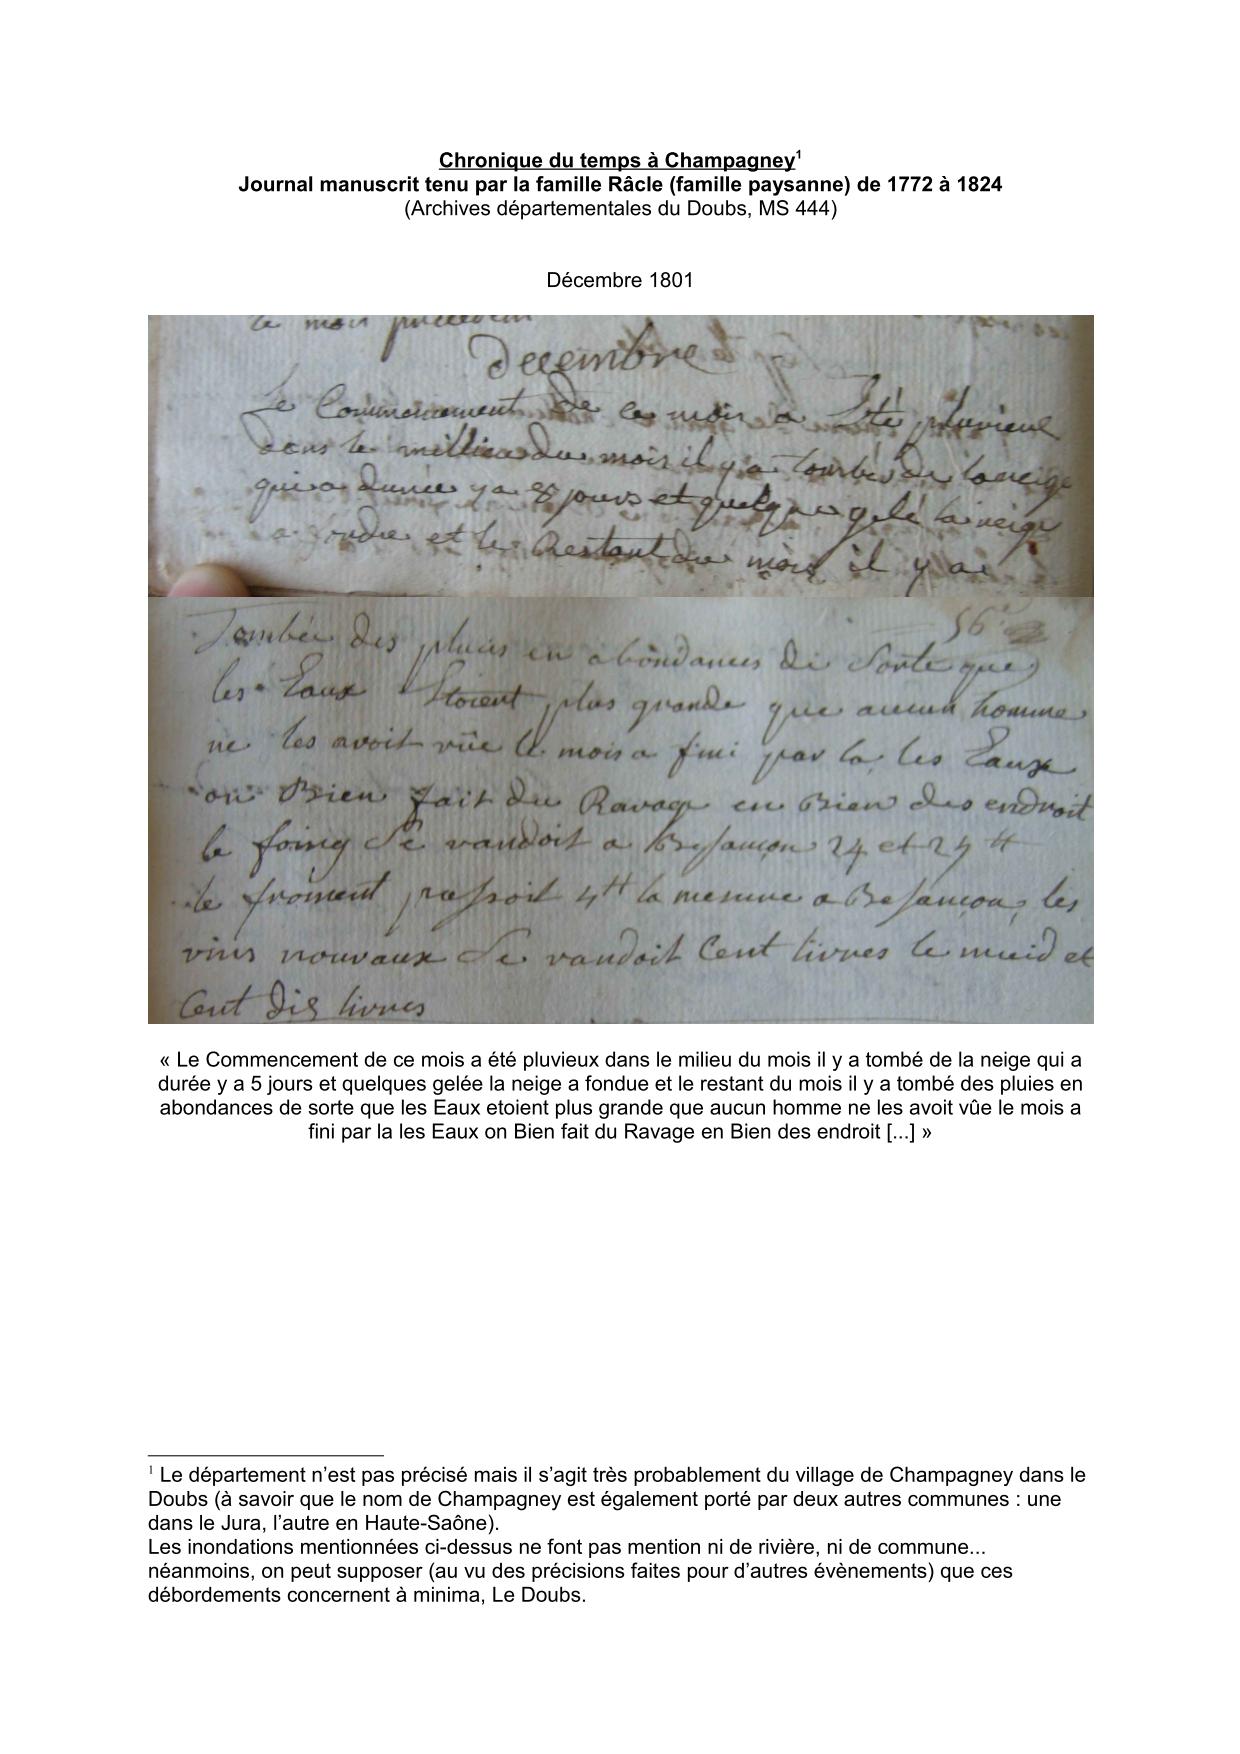 Chronique du temps à Champagney¹
Journal manuscrit tenu par la famille Râcle (famille paysanne) de 1772 à 1824
(Archives départementales du Doubs, MS 444)
Décembre 1801
le mois precedent
Decembre
Le Commencement de ce mois a Eté pluvieux
dans le millieu du mois il y a tombé de la neige
qui a durée y a 8 jours et quelque gelé la neige
a fondue et le Restant du mois il y a
56
Tombée des pluies en abondances de Sorte que
les Eaux Etoient plus grande que aucun homme
ne les avoit vûe le mois a fini par la les Eaux
on Bien fait du Ravage en Bien des endroit
le foing Se vandoit a Besançon 24 et 25 ₶
le froment passoit 4 ₶ la mesure a Besançon, les
vins nouvaux Se vandoit Cent livres le muid et
Cent dix livres
« Le Commencement de ce mois a été pluvieux dans le milieu du mois il y a tombé de la neige qui a
durée y a 5 jours et quelques gelée la neige a fondue et le restant du mois il y a tombé des pluies en
abondances de sorte que les Eaux etoient plus grande que aucun homme ne les avoit vûe le mois a
fini par la les Eaux on Bien fait du Ravage en Bien des endroit [...] »
¹ Le département n’est pas précisé mais il s’agit très probablement du village de Champagney dans le
Doubs (à savoir que le nom de Champagney est également porté par deux autres communes : une
dans le Jura, l’autre en Haute-Saône).
Les inondations mentionnées ci-dessus ne font pas mention ni de rivière, ni de commune...
néanmoins, on peut supposer (au vu des précisions faites pour d’autres évènements) que ces
débordements concernent à minima, Le Doubs.